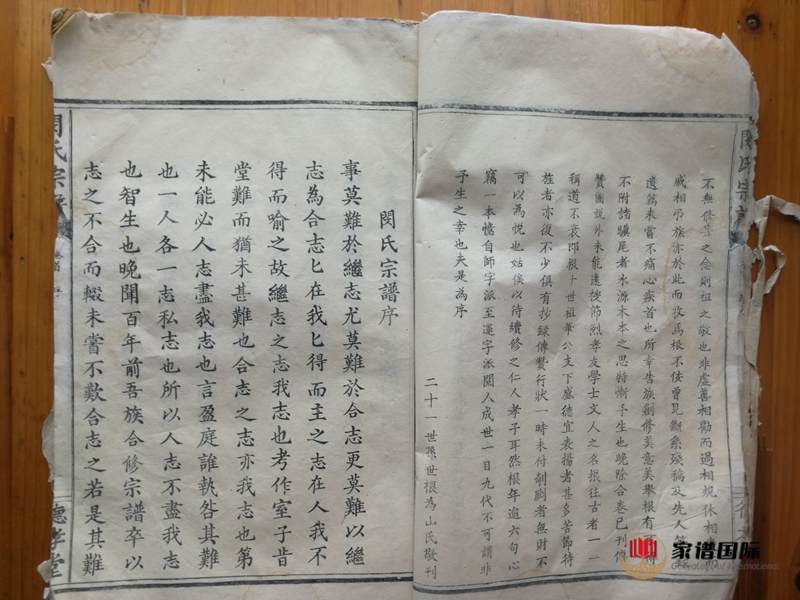 閔氏宗
不無修善之念則祖之敬也非虛善相勸而過相規休相
戚相弔族亦於此而敦焉根不佞曾見斷系殘稿及先人
遺 未嘗不痛心疾首也所幸告族創修美意美舉根有可得
不附諸驥尾者水源木本之思特慚予生也晚除合卷已刊傳
贊圖說外未能遺搜節烈孝友學士文人之名振往古者一一
稱道不衰即根十世祖華公支下盛德宜表揚者甚多苦節待
旌者亦復不少俱有抄錄傳贊行狀一時未付剞劂者無財不
可以為悅也姑俟以待續修之仁人孝子耳然根年逾六旬心
竊一本憶自師字派至運字派閱人成世一目九代不可謂非
予生之幸也夫是為序
二十一世孫世根為山氏敬刊
閔氏宗譜序
事莫難於繼志尤莫難於合志更莫難以繼
志為合志匕在我匕得而主之志在人我不
得而喻之故繼志之志我志也考作室子肯
堂難而猶未甚難也合志之志亦我志也第
未能必人志盡我志也言盈庭誰執咎其難
也一人各一志私志也所以人志不盡我志
也智生也晚聞百年前吾族合修宗譜卒以
志之不合而輟未嘗不歎合志之若是其難
閔氏宗譜
卷首 序
德孝堂
家谱国际
Genealogy of International